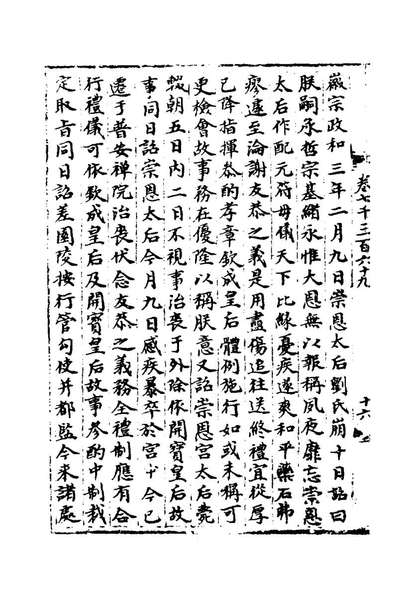 徽宗政和三年二月九日崇恩太后劉氏崩十日詔曰
朕嗣承哲宗基緒永惟大恩無以報稱夙夜靡忘崇恩
太后作配元符母儀天下比緣憂疾遂爽和平藥石弗
瘳遽至淪謝友恭之義是用盡傷追往送終禮宜從厚
已降指揮恭酌孝章欽成皇后體例施行如或未稱可
更檢會故事務在優隆以稱朕意又詔崇恩宮太后薨
輟朝五日內二日不視事治喪于外除依開寶皇后故
事同日詔崇恩太后今月九日感疾暴卒於宮中今已
遷于普安禪院治喪伏念友恭之義務全禮制應有合
行禮儀可依欽成皇后及開寶皇后故事參酌中制裁
定取旨同日詔差園陵按行管勾使并都監今來諸處
卷七千三百六十九
十六